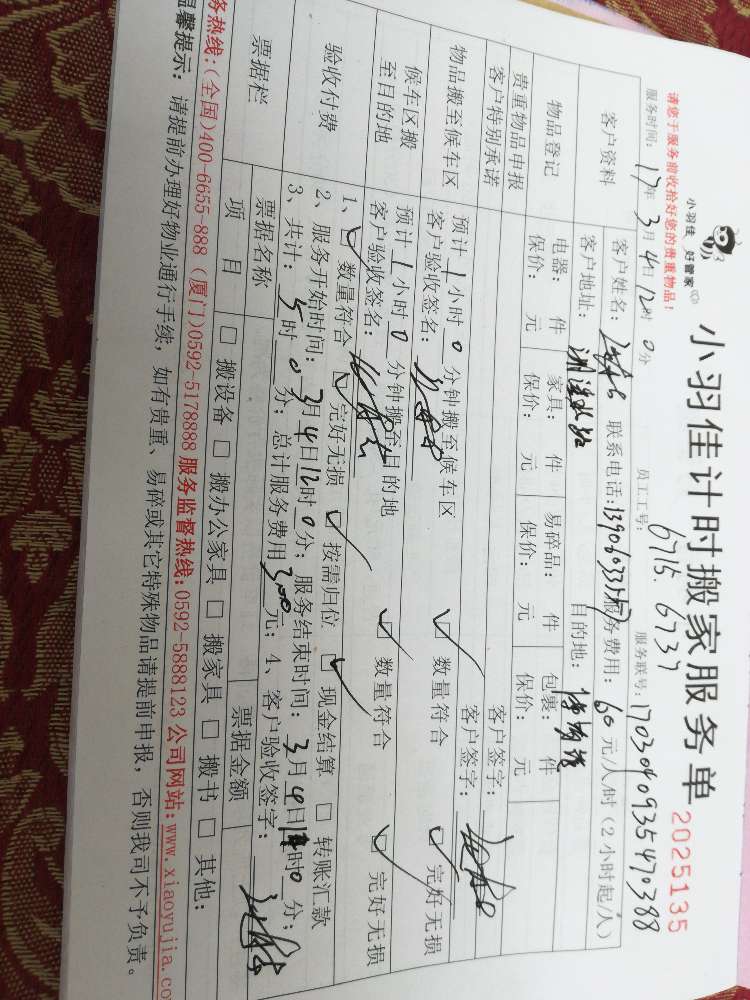 小羽佳 好管家
小羽佳计时搬家服务单
2025135
请您于服务前收拾好您的贵重物品!
员工工号: 6715. 6737
服务联号: 1703040935470388
服务时间: 17年 3月 4日 12时 0分
客户资料
客户姓名: 联系电话: 服务费用: 60 元/人/时 (2小时起/人)
客户地址: 目的地:
物品登记
电器: 件 家具: 件 易碎品: 件 包裹: 件
保价: 元 保价: 元 保价: 元 保价: 元
贵重物品申报
客户特别承诺
客户签字:
物品搬至候车区
预计 1 小时 0 分钟搬至候车区
客户验收签名: ☑ 数量符合 ☑ 完好无损
客户签字:
候车区搬至目的地
预计 1 小时 0 分钟搬至目的地
客户验收签名: ☑ 数量符合 ☑ 完好无损
验收付费
1、☑ 数量符合 ☑ 完好无损 ☑ 按需归位 ☑ 现金结算 □ 转账汇款
2、服务开始时间: 3月4日12时0分; 服务结束时间: 3月4日 时0分;
3、共计: 5时 0分; 总计服务费用 300 元; 4、客户验收签字:
票据栏
票据名称 票据金额
项 目 □ 搬设备 □ 搬办公家具 □ 搬家具 □ 搬书 □ 其他:
务热线:(全国)400-6655-888 (厦门)0592-5178888 服务监督热线:0592-5888123 公司网站:www.xiaoyujia.co
温馨提示: 请提前办理好物业通行手续, 如有贵重、易碎或其它特殊物品请提前申报, 否则我司不予负责。